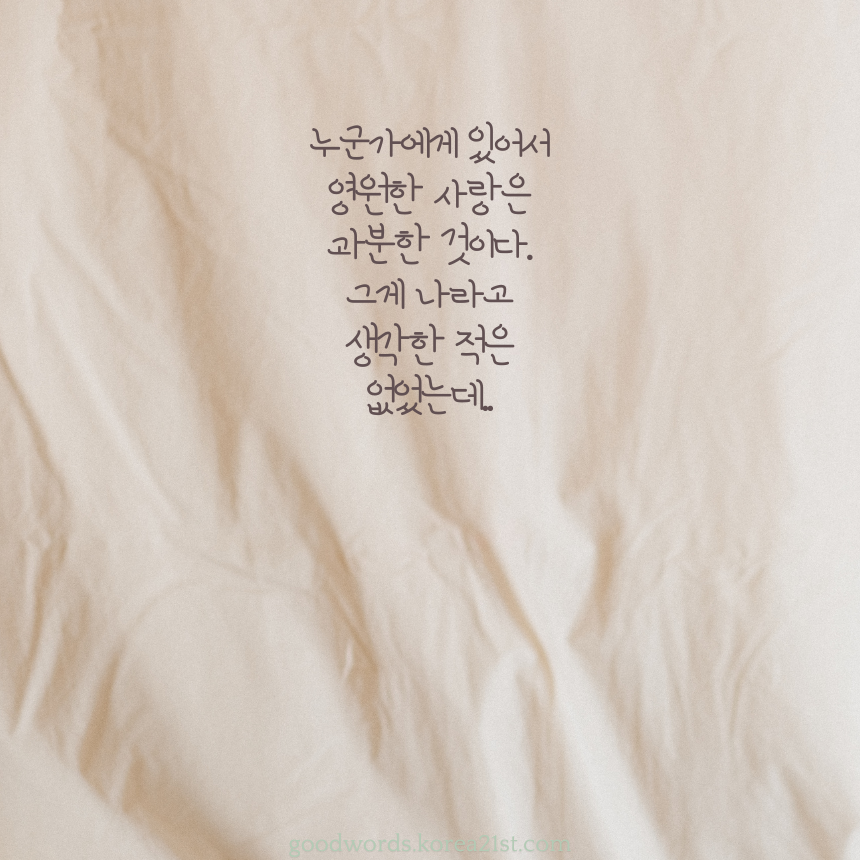 누군가에게 있어서
영원한 사랑은
과분한 것이다.
그게 나라고
생각한 적은
없었는데..
goodwords.korea21st.com